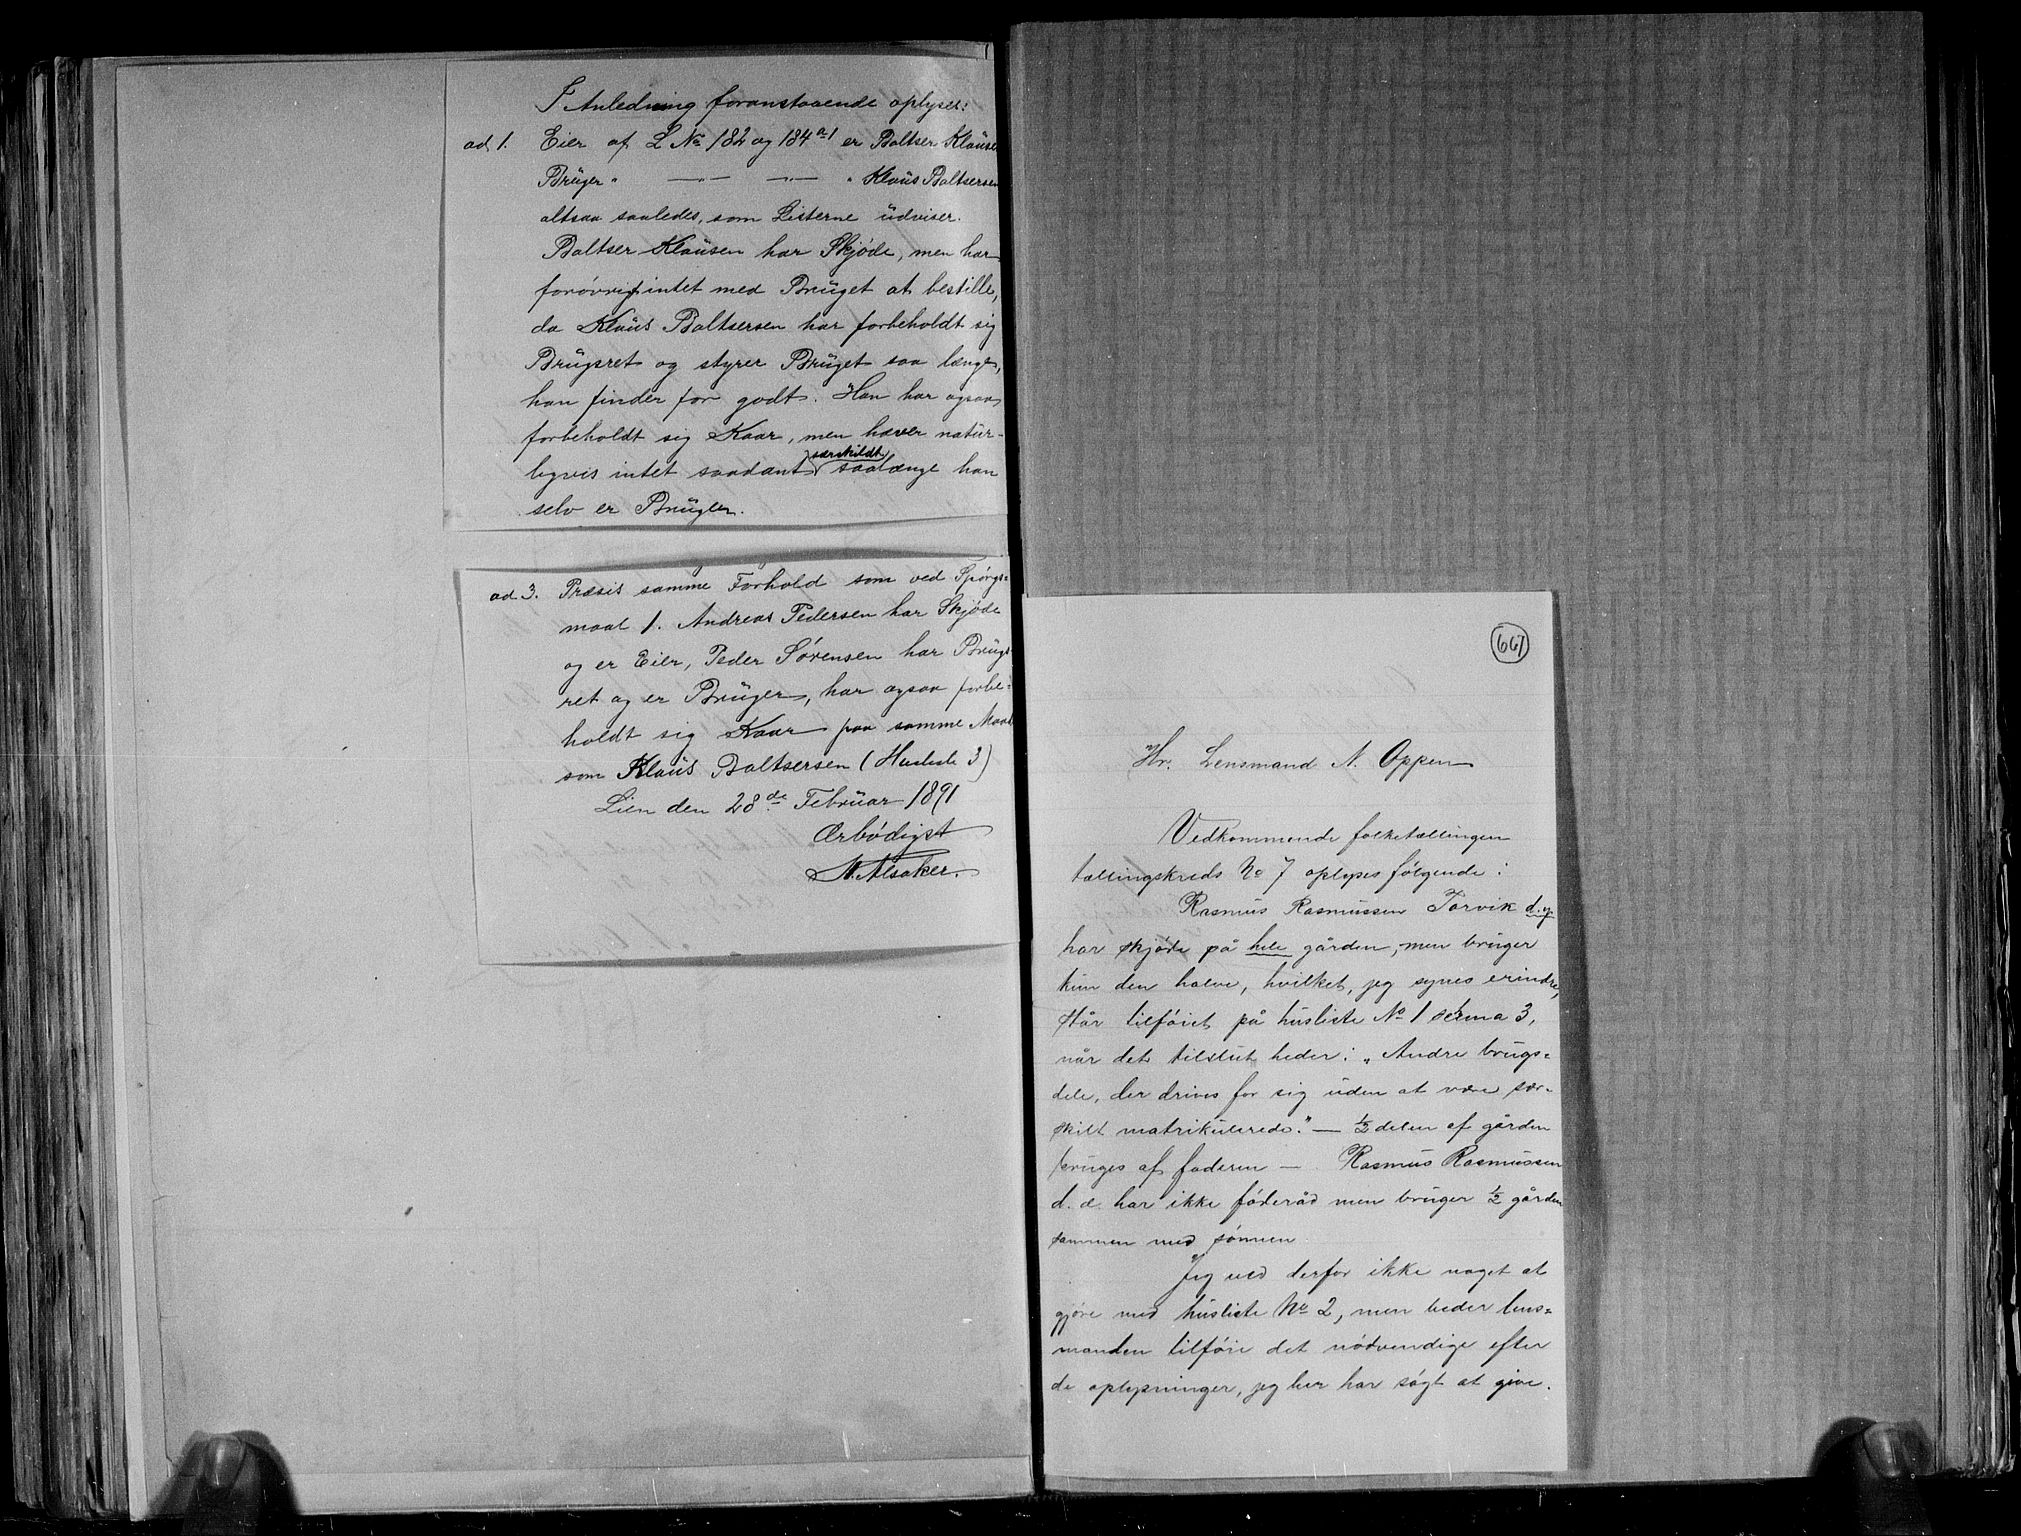 I Anledning foranstaaende oplyses:
ad 1. Eier af L No 182 og 184 a1 er Baltser Klausen
Brüger " —"— —"— " Klaüs Baltsersen
altsaa saaledes, som Listerne üdviser.
Baltser Klaüsen har Skjøde, men har
forøvrigt intet med Brüget at bestille,
da Klaüs Baltsersen har forbeholdt sig
Brügsret og styrer Brüget saa længe,
han finder for godt. Han har ogsaa
forbeholdt sig Kaar, men hæver natür-
ligvis intet saadant særskildt saalænge han
selv er Brüger.
ad 3. Præsis samme Forhold som ved Spørgs=
maal 1. Andreas Pedersen har Skjøde
og er Eier, Peder Sørensen har Brügs-
ret og er Brüger, har ogsaa forbe=
holdt sig Kaar paa samme Maade
som Klaüs Baltsersen (Husliste 3)
Lien den 28de Februar 1891
Ærbødigst
N. Alsaker.
667
Hr. Lensmand N. Oppen
Vedkommende folketællingen
tællingskreds No 7 oplyses følgende:
Rasmus Rasmussen Torvik d. y.
har skjøde på hele gården, men bruger
kun den halve, hvilket, jeg synes erindre,
står tilføiet på husliste No 1 skema 3,
når det tilslut heder: „Andre brugs=
dele, der drives for sig uden at være sær-
skilt matrikulerede." — ½ delen af gården
bruges af faderen — Rasmus Rasmussen
d. æ. har ikke føderåd men bruger ½ gården
sammen med sønnen
Jeg ved derfor ikke noget at
gjøre med husliste No 2, men beder lens=
manden tilføie det nødvendige efter
de oplysninger, jeg her har søgt at give.